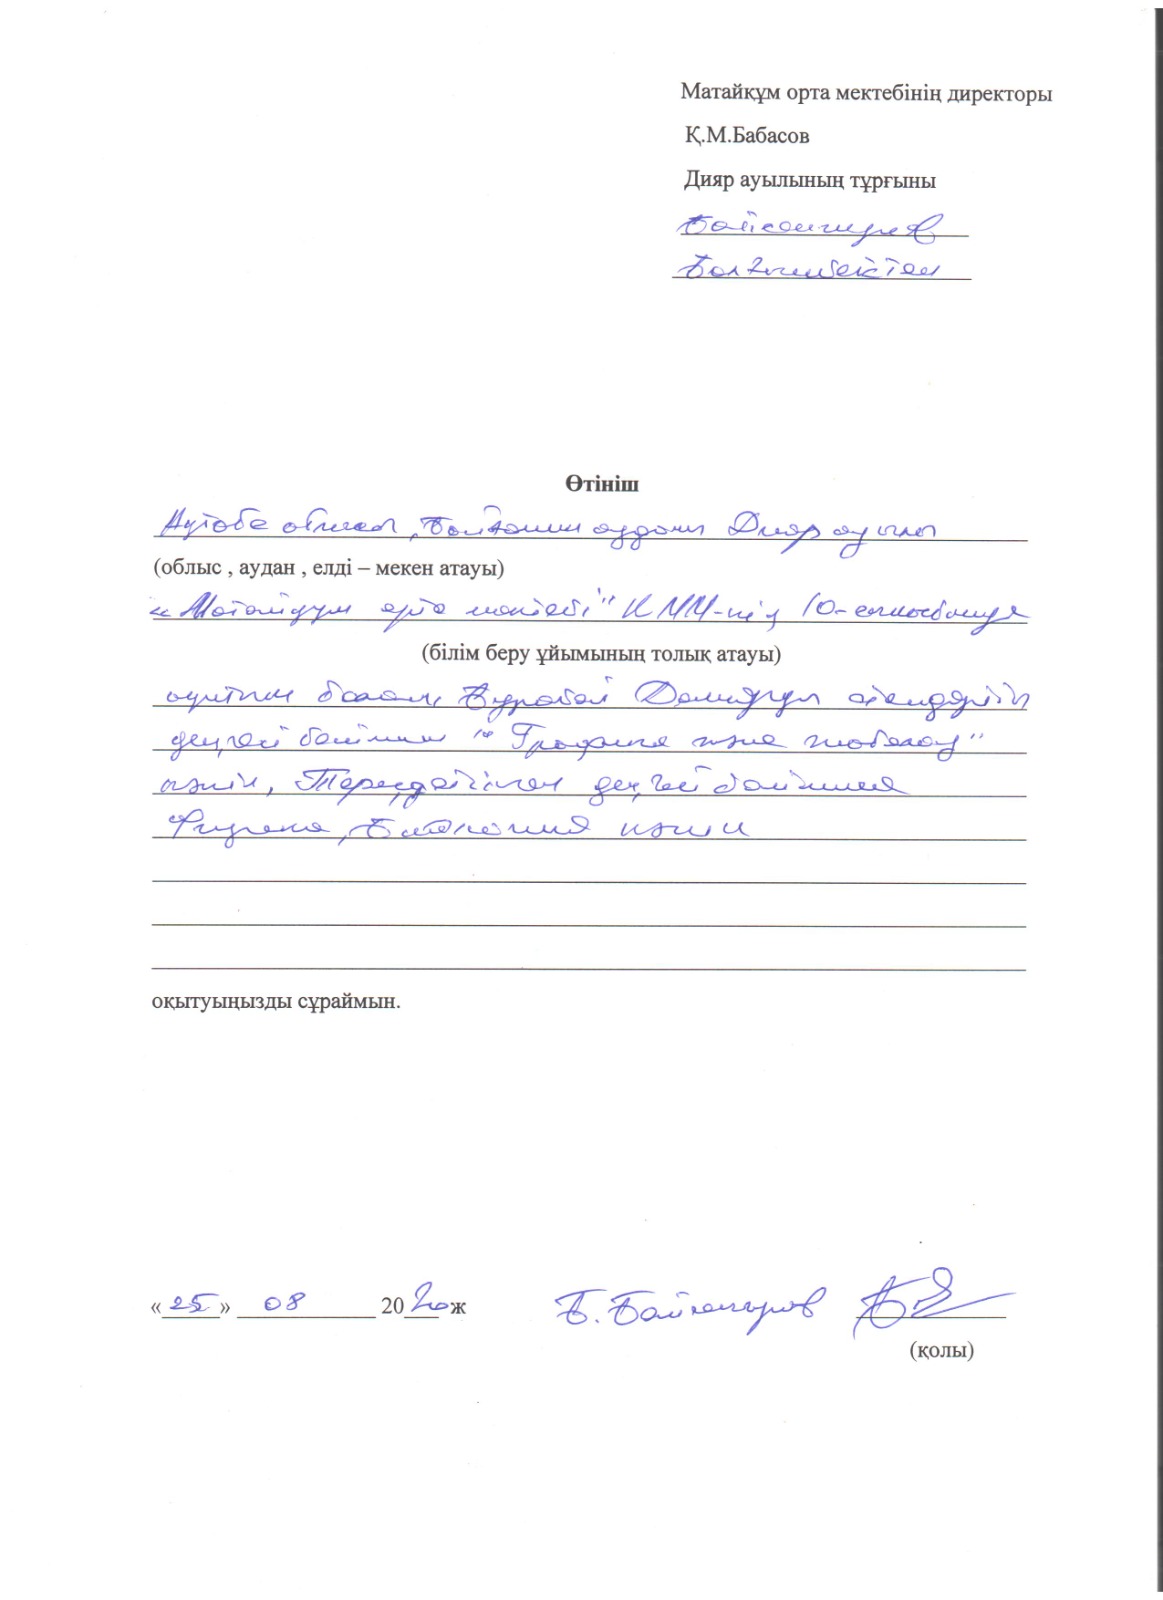 Матайқұм орта мектебінің директоры
Қ.М.Бабасов
Дияр ауылының тұрғыны
Ақтөбе облысы, Байғанин ауданы Дияр ауылы
(облыс , аудан , елді – мекен атауы)
«Матайқұм орта мектебі" КММ-нің 10-сыныбында
(білім беру ұйымының толық атауы)
оқитын балам
деңгей бойынша "Графика және жобалау"
пәнін, Тереңдетілген деңгей бойынша
Физика, Биология пәнін
оқытуыңызды сұраймын.
Өтініш
« 25 » 08 2020 ж
(қолы)